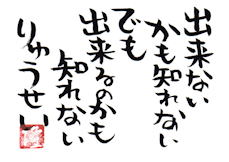 出来ない
かも知れない
でも
出来るのかも
知れない
りゅうせい